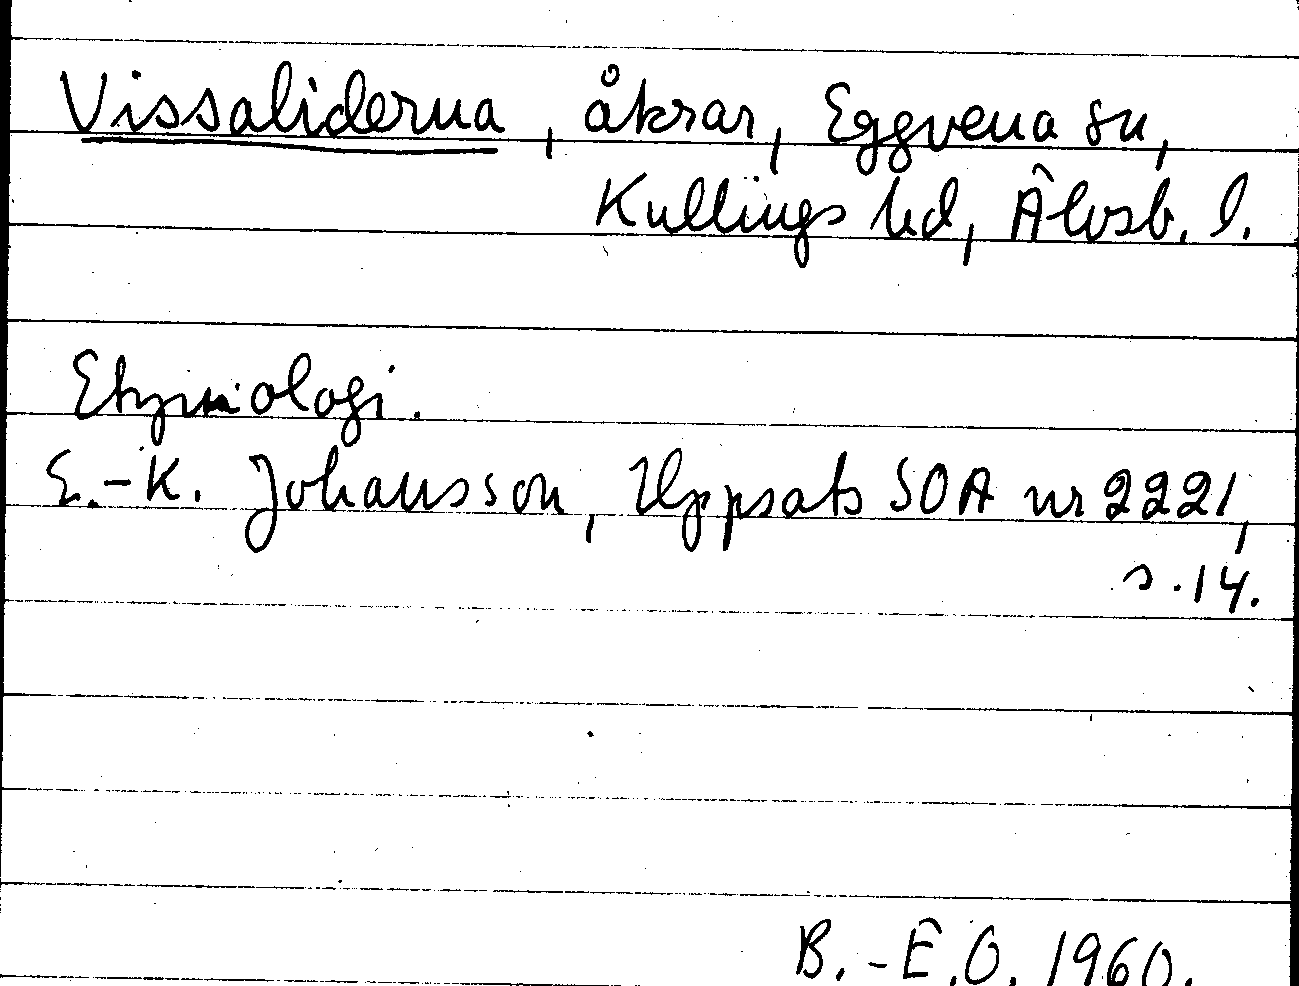 Vissaliderna, åkrar, Eggvena sn,
Kullings hd, Älvsb. l.
Etymologi.
E.-K. Johansson, Uppsats SOA nr 2221,
s. 14.
B.-E.O. 1960.